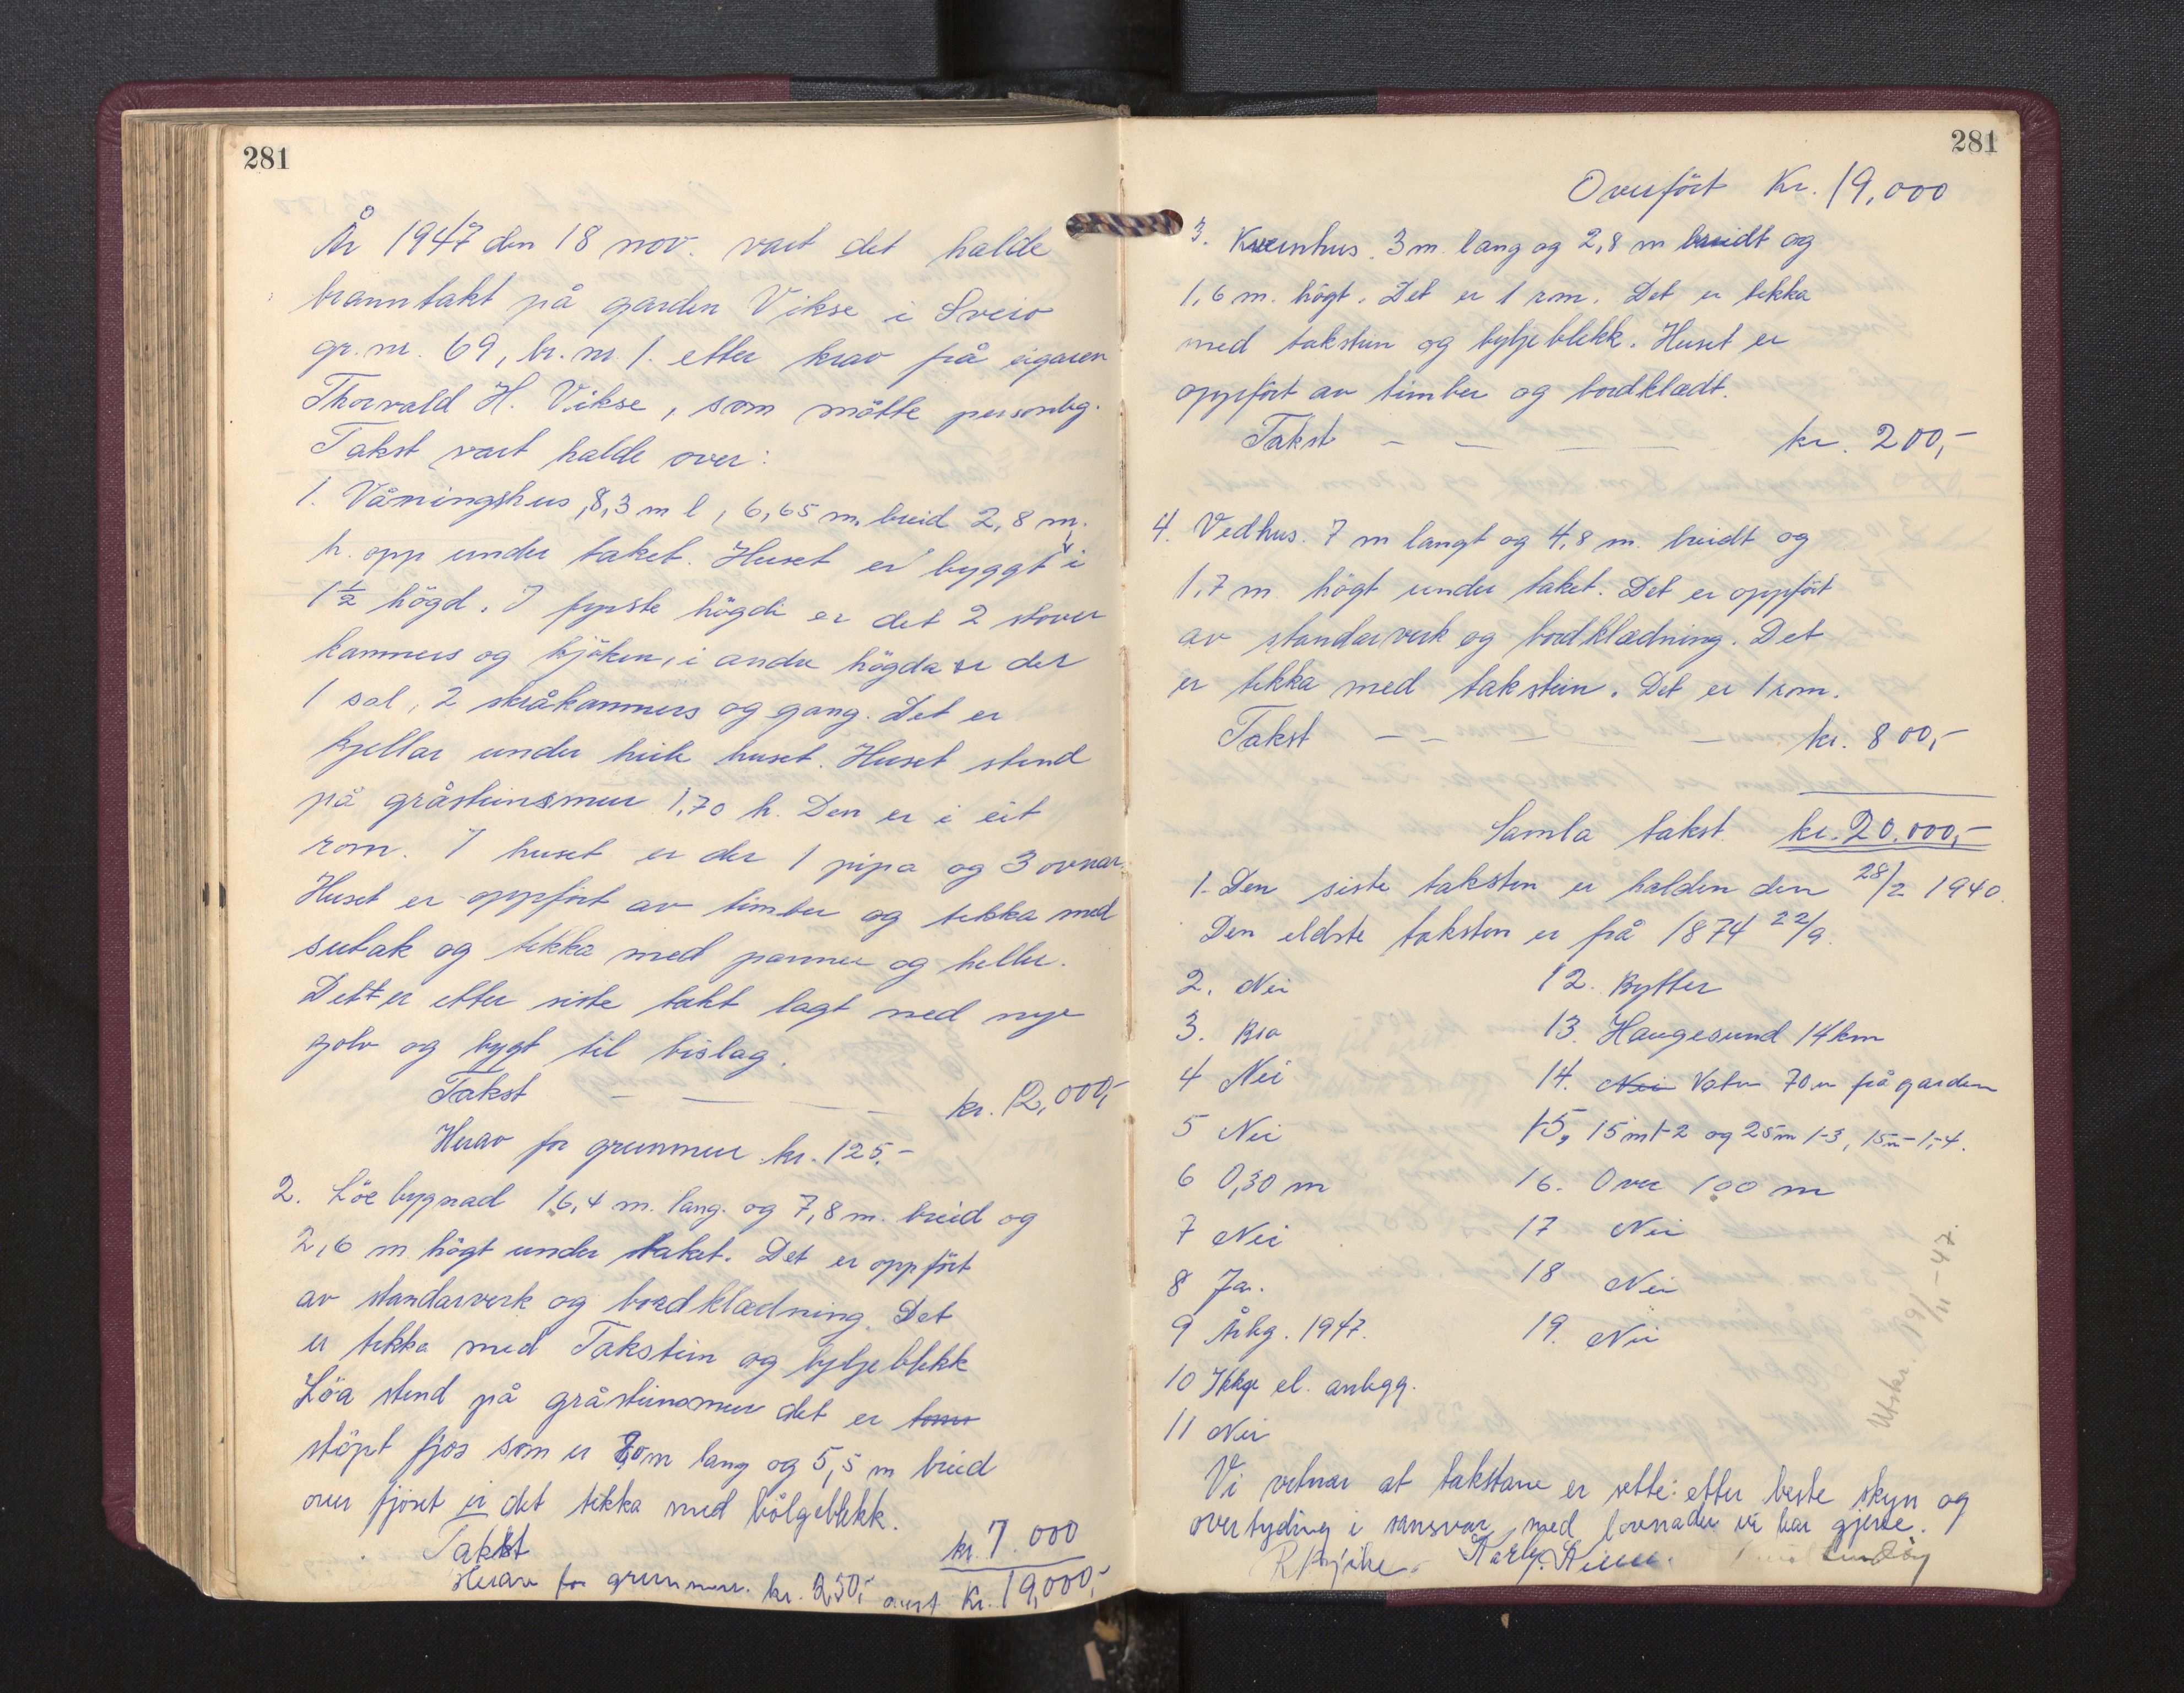 281
År 1947 den 18 nov. vart det halde
branntakt på garden Vikse i Sveio
gr. nr. 69, br. nr. 1. etter krav frå eigaren
Thorvald H. Vikse, som møtte personleg.
Takst vart halde over:
1. Våningshus, 8,3 m l, 6,65 m. breid 2,8 m.
h. opp under taket. Huset er byggt i
1½ högd. I fyrste högdi er det 2 stover
kammers og kjöken, i andre högda er der
1 sal, 2 skråkammers og gang. Det er
kjellar under heile huset. Huset stend
på gråsteinsmur 1,70 h. Den er i eit
rom. I huset er der 1 pipa og 3 ovnar.
Huset er oppfört av timber og tekka med
sutak og tekka med panner og heller.
Dett er etter siste takt lagt ned nye
golv og bygt til bislag.
Takst — — — — kr. 12,000,-
Herav for grunnmur kr. 125.-
2. Löebygnad 16,4 m. lang. og 7,8 m. breid og
2,6 m högt under taket. Det er oppfört
av standarverk og bordklædning. Det
er tekka med Takstein og bylgeblekk
Löa stend på gråsteinsmur det er
stöpt fjos som er 8,0 m lang og 5,5 m breid
over fjoset er det tekka med bölgeblekk.
Takst kr. 7.000
Herav for grunnmur. kr. 250,- overf. Kr. 19,000,-
281
Overfört Kr. 19,000
3. Kvernhus. 3 m. lang og 2,8 m breidt og
1,6 m. högt. Det er 1 rom. Det er tekka
med takstein og bylgeblekk. Huset er
oppfört av timber og bordklædt.
Takst — — — — kr. 200,-
4. Vedhus. 7 m langt og 4,8 m. breidt og
1,7 m. högt under taket. Det er oppfört
av standarverk og bordklædning. Det
er tekka med takstein. Det er 1 rom.
Takst — — — — kr. 800,-
Samla takst kr. 20.000,-
1. Den siste taksten er halden den 28/2 1940.
Den eldste taksten er frå 1874 22/9.
2. Nei
3. Bra
4 Nei
5 Nei
6 0,30 m
7 Nei
8 Ja.
9 Årbg. 1947.
10 Ikkje el. anlegg.
11 Nei
12. Bytter
13. Haugesund 14 km
14. Nei Vatn 70 m frå garden
15, 15 m 1-2 og 25 m 1-3, 15 m - 1-4.
16. Over 100 m
17 Nei
18 Nei
19. Nei
Utskr. 19/11-47
Vi vitnar at takstane er sette etter beste skyn og
overtyding i ansvar med lovnader vi har gjeve.